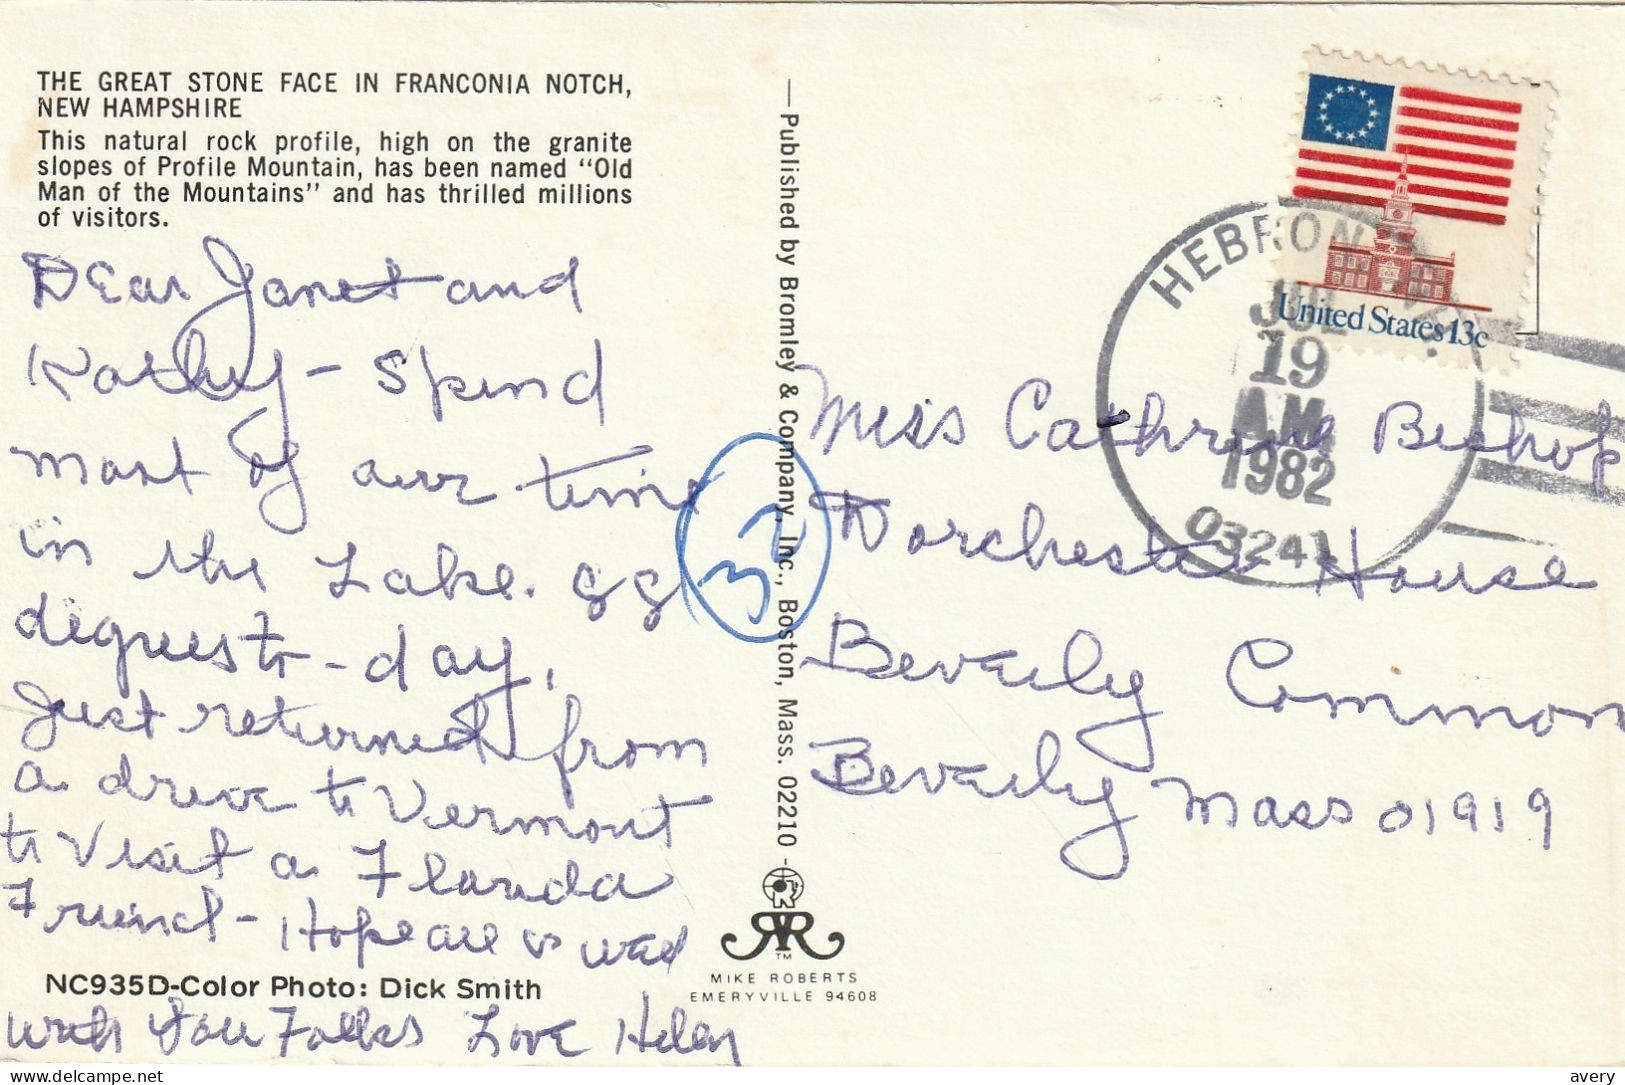 THE GREAT STONE FACE IN FRANCONIA NOTCH,
NEW HAMPSHIRE
This natural rock profile, high on the granite
slopes of Profile Mountain, has been named "Old
Man of the Mountains" and has thrilled millions
of visitors.
Dear Janet and
Kathy - Spend
most of our time
in the Lake. 88
degrees to-day.
Just returned from
a drive to Vermont
to Visit a Florida
Friend - Hope all is well
NC935D-Color Photo: Dick Smith
with You Folks Love Helen
32
—Published by Bromley & Company, Inc., Boston, Mass. 02210
TM
MIKE ROBERTS
EMERYVILLE 94608
United States 13c
HEBRON
JUL
19
A.M.
1982
03241
Miss Cathrine Bishop
Dorchester House
Beverly Common
Beverly Mass 01919
delcampe.net
avery